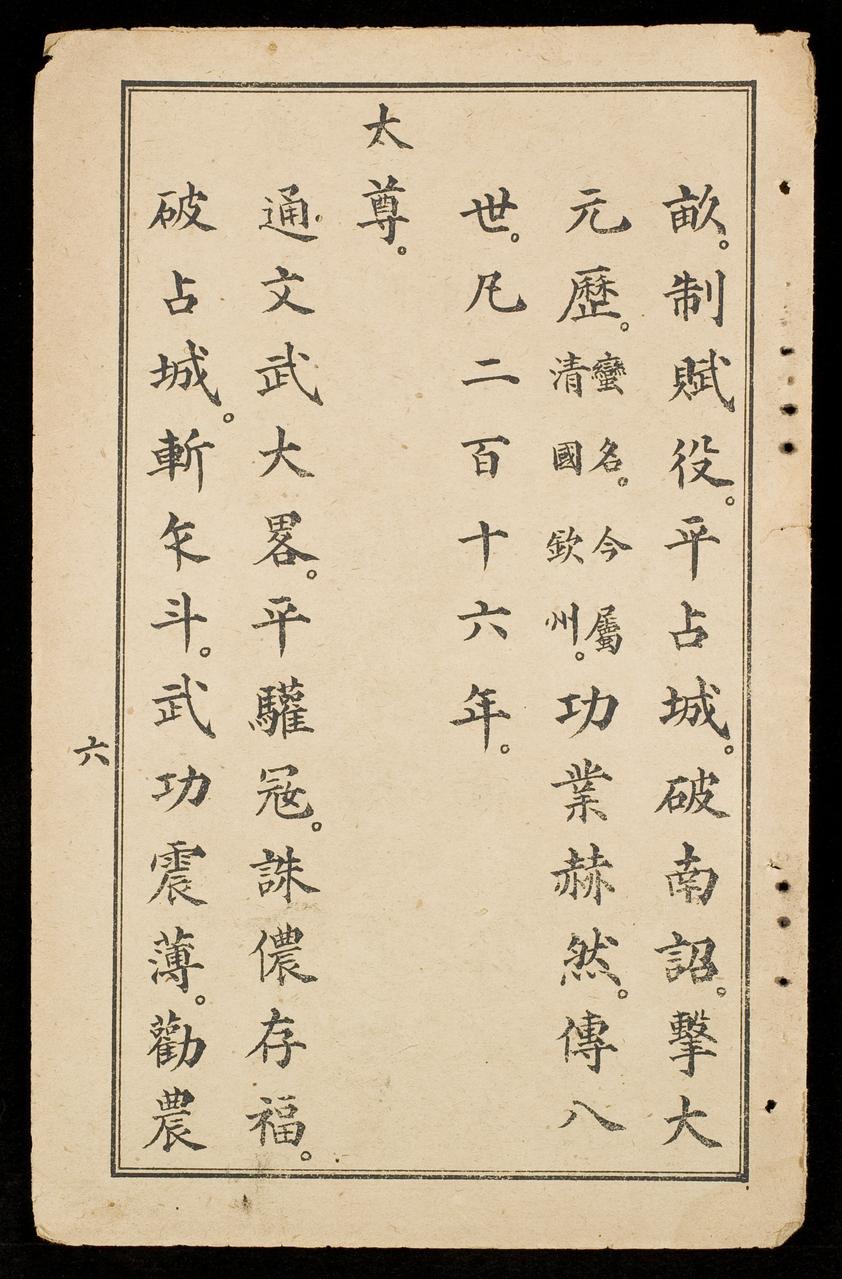 畝。制賦役。平占城。破南詔。擊大
元歷。蠻名。今屬清國欽州。功業赫然。傳八
世。凡二百十六年。
太尊。
通文武大畧。平驩寇。誅儂存福。
破占城。斬乍斗。武功震薄。勸農
六